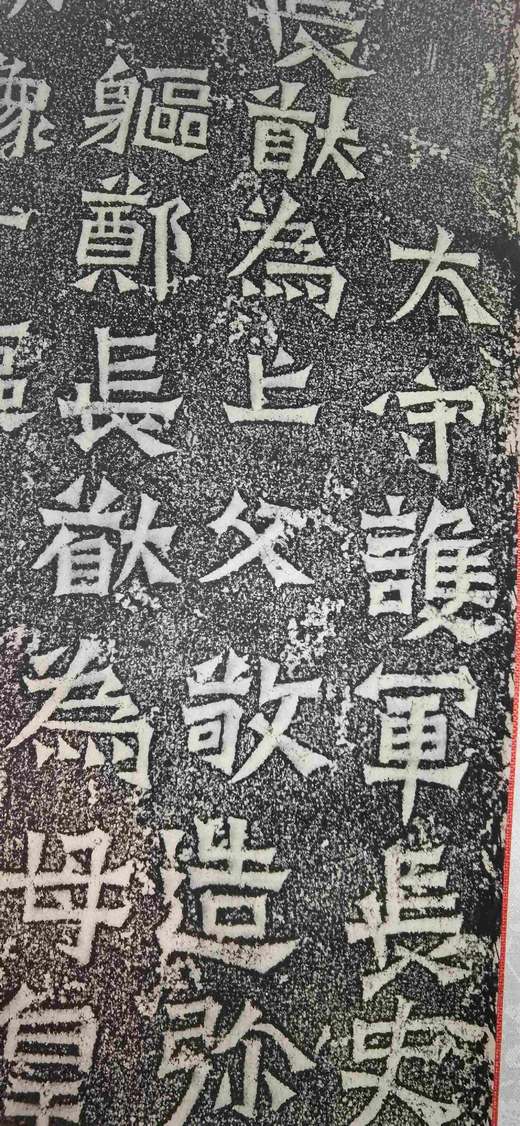 太守護軍長史
長猷為亡父敬造弥
軀鄭長猷為母皇